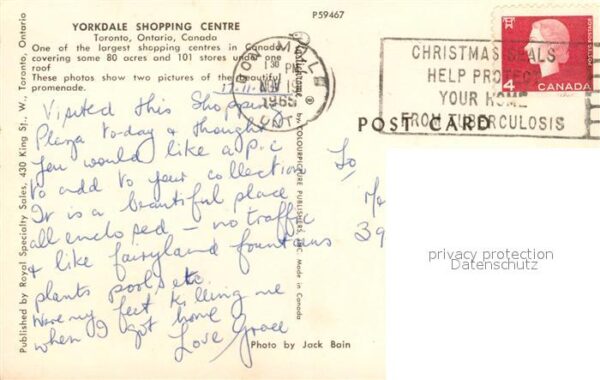 P59467
YORKDALE SHOPPING CENTRE
Toronto, Ontario, Canada
One of the largest shopping centres in Canada,
covering some 80 acres and 101 stores under one
roof
These photos show two pictures of the beautiful
promenade.
17-11-
DON MILLS
1 30 PM
NOV 19
1965
ONT.
CHRISTMAS SEALS
HELP PROTECT
YOUR HOME
FROM TUBERCULOSIS
4
CANADA
POSTES POSTAGE
POST CARD
Visited this Shopping
Plaza today & thought
you would like a p.c
to add to your collection
It is a beautiful place
all enclosed - no traffic
& like fairyland fountains
plants pools etc.
Were my feet killing me
when I got home
Love Grace
To
39
privacy protection
Datenschutz
Photo by Jack Bain
Published by Royal Specialty Sales, 430 King St., W., Toronto, Ontario
by COLOURPICTURE PUBLISHERS, INC. Made in Canada